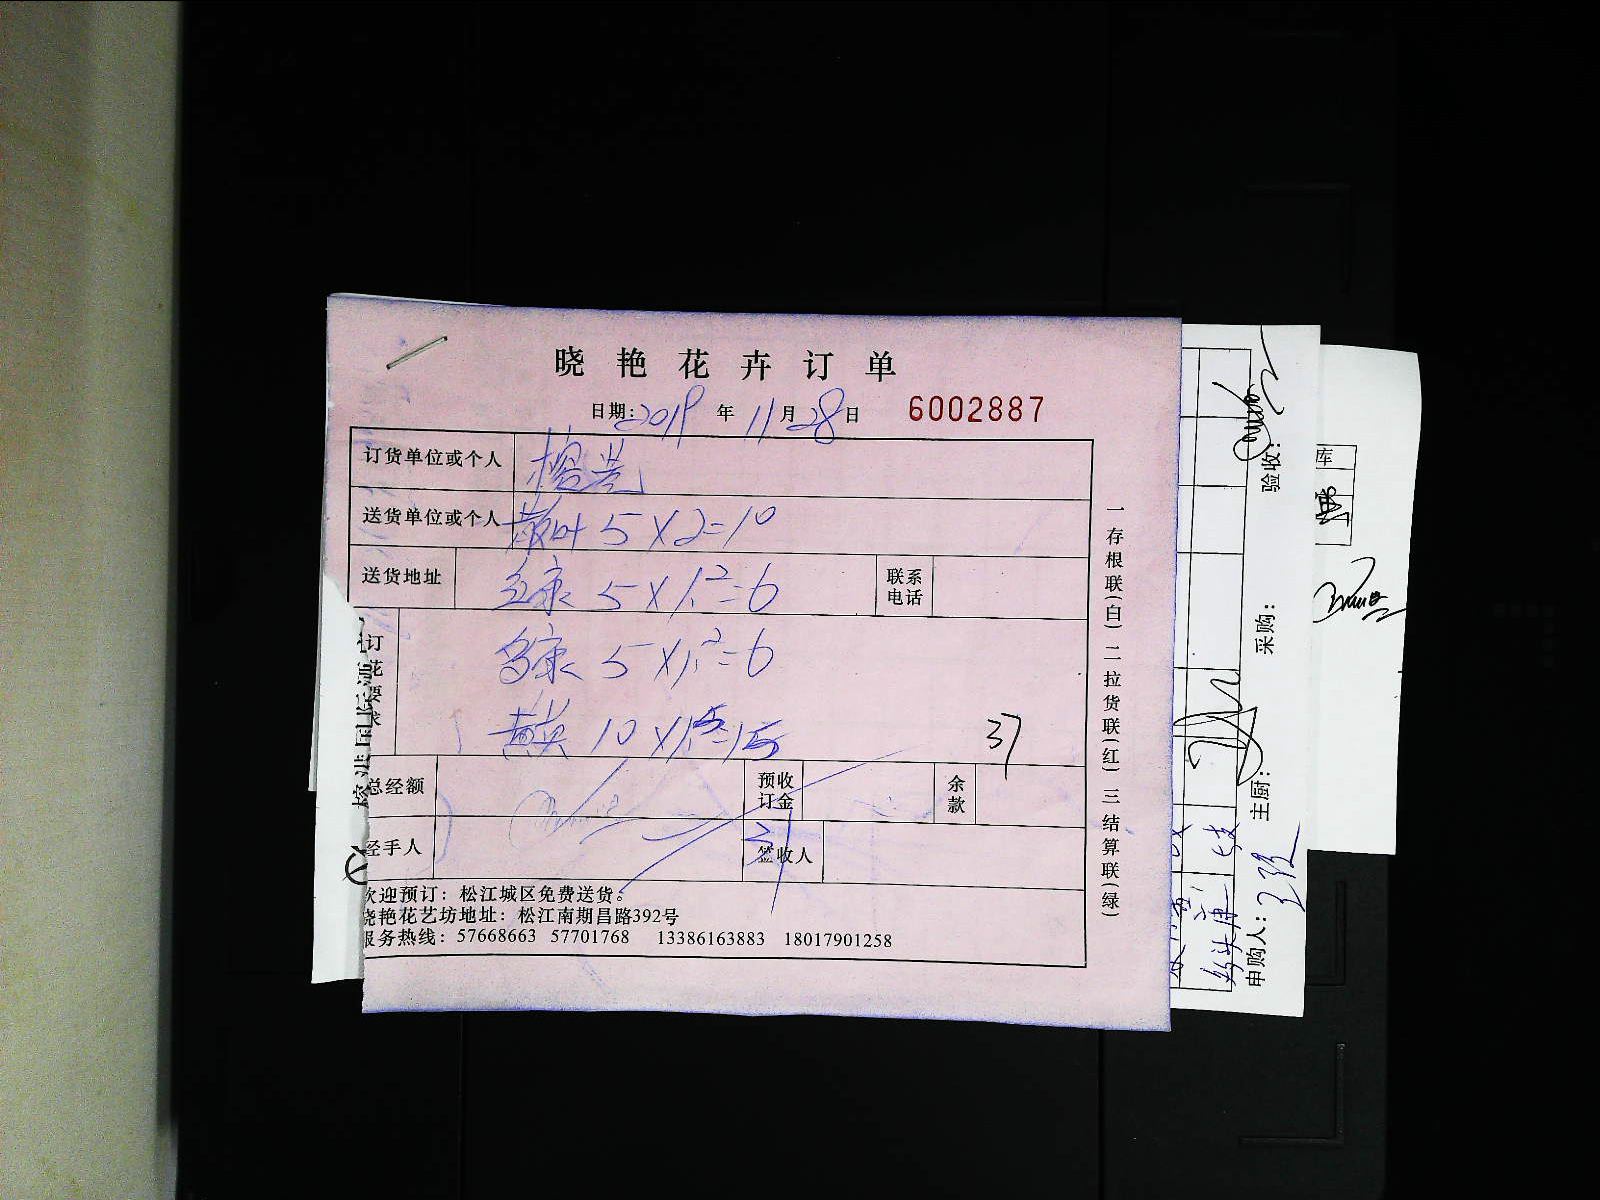 晓艳花卉订单
日期:2019年11月28日 6002887
订货单位或个人
送货单位或个人 散叶 5×2=10
送货地址 5×1.2=6 联系电话
订花要求
5×1.2=6
黄英 10×1.5=15
37
总经额 预收订金 余款
经手人 签收人
欢迎预订：松江城区免费送货。
晓艳花艺坊地址：松江南期昌路392号
服务热线：57668663 57701768 13386163883 18017901258
一存根联(白)二拉货联(红)三结算联(绿)
验收：
采购：
主厨：
申购人：
库